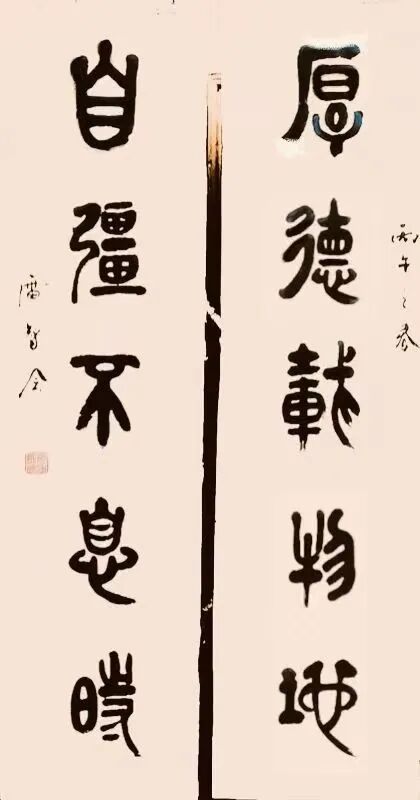 厚德載物地
丙午之春
自彊不息時